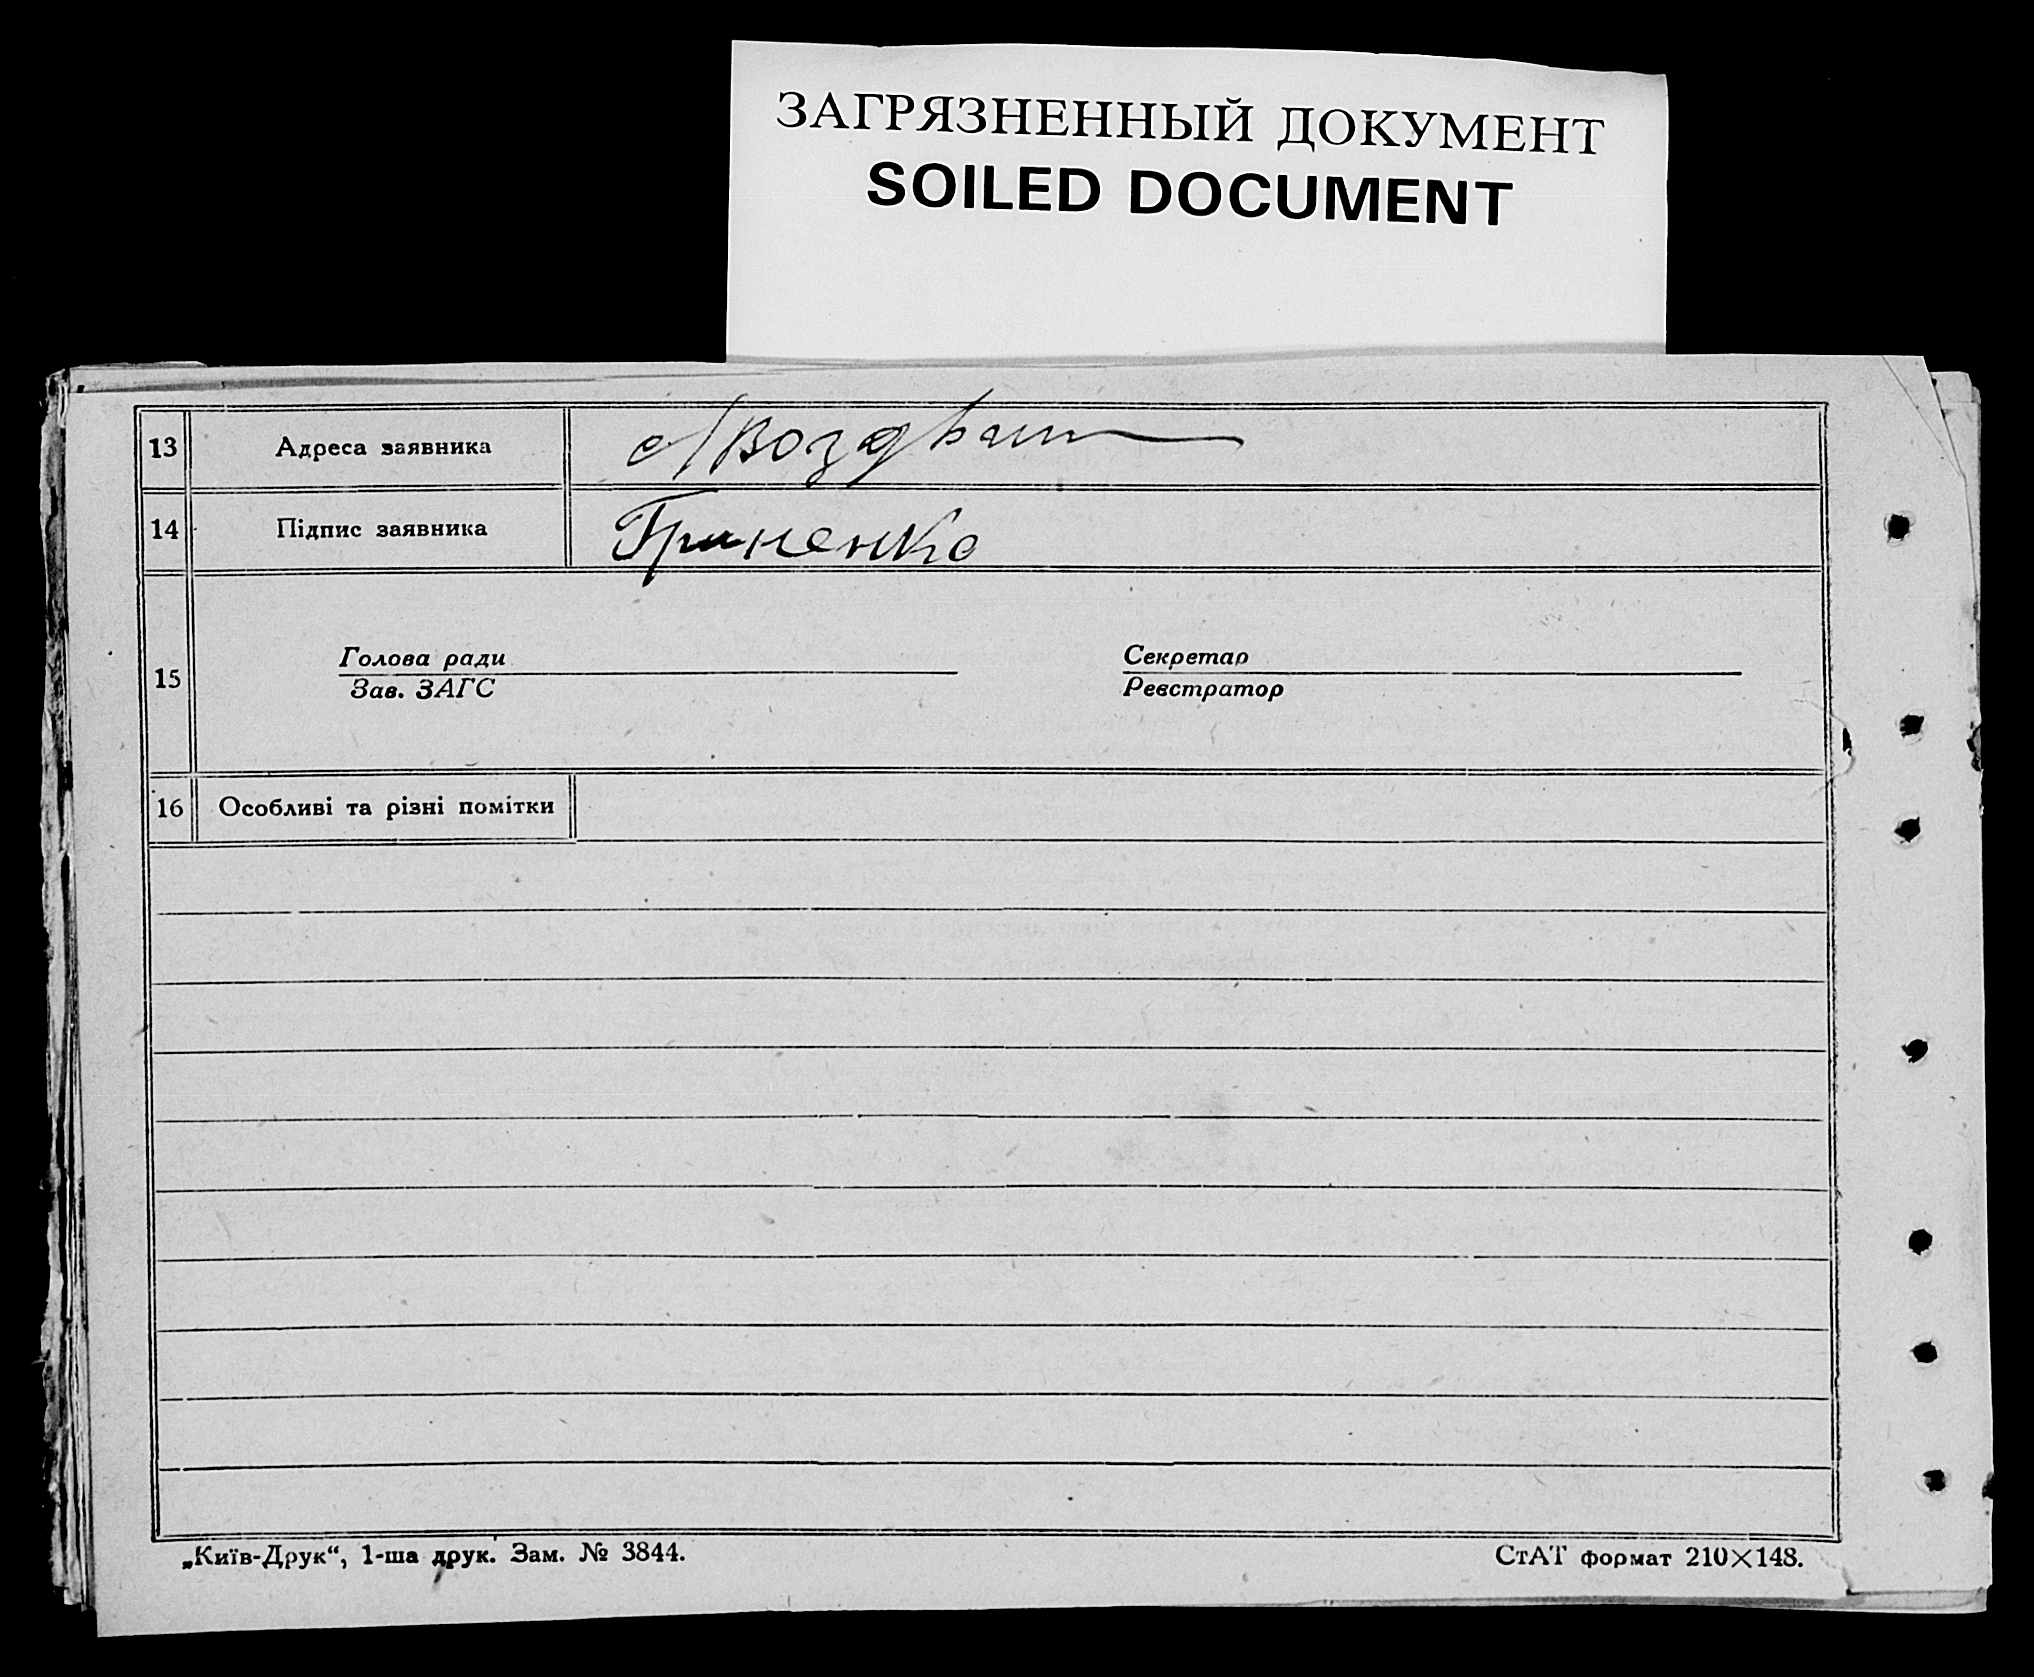 ЗАГРЯЗНЕННЫЙ ДОКУМЕНТ
SOILED DOCUMENT
13 Адреса заявника
14 Підпис заявника Гриненко
15 Голова ради Секретар
Зав. ЗАГС Реєстратор
16 Особливі та різні помітки
„Київ-Друк“, 1-ша друк. Зам. № 3844. СтАТ формат 210×148.